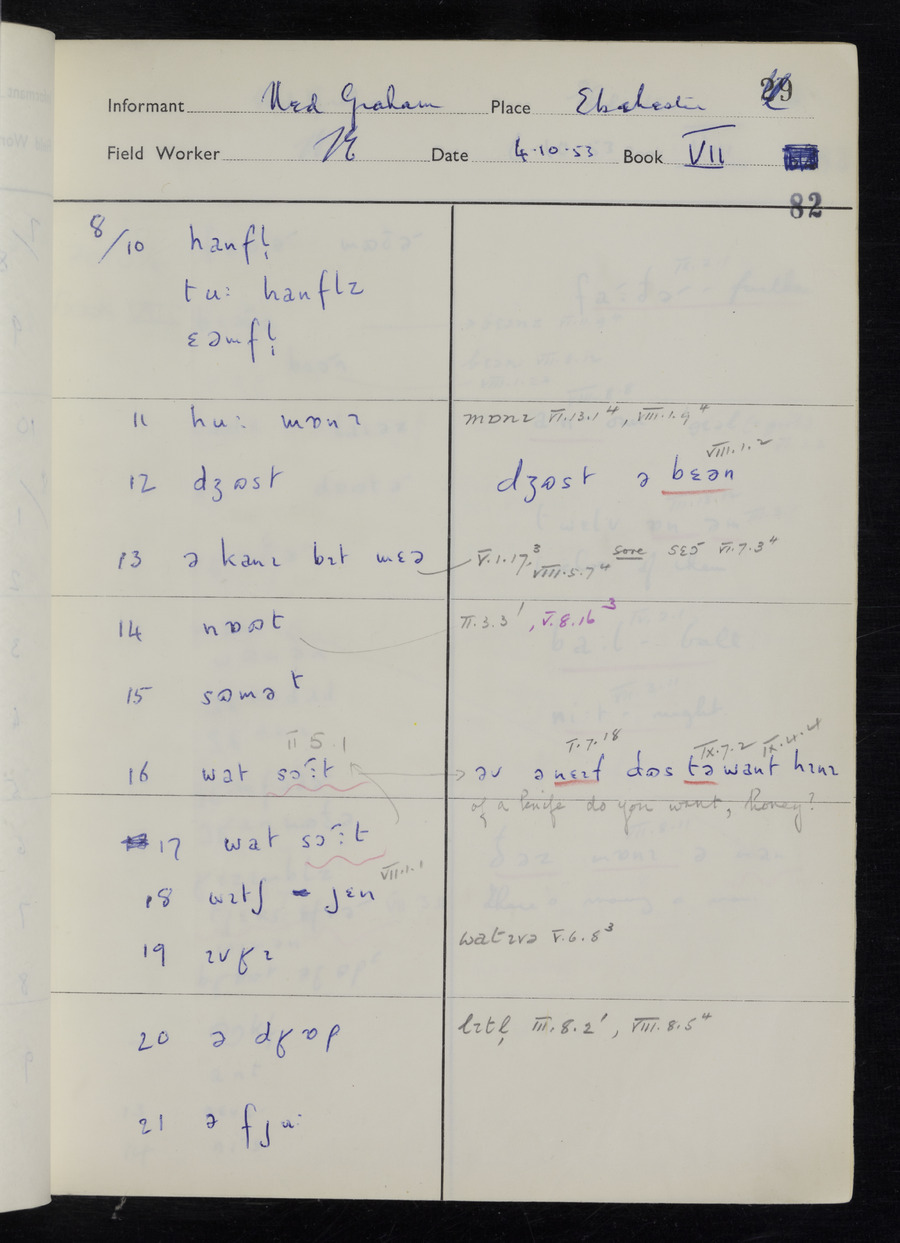 29
Informant Ned Graham Place Ebchester
Field Worker Date 4.10.53 Book VII
82
8/10 hanfl̩
tuː hanflz
ɛəmfl̩
11 huː mɒnɪ mɒnɪ VI.13.1⁴, VIII.1.9⁴
VIII.1.2
12 dʒɷst dʒɷst ə bɛən
13 ə kanɪ bɪt mɛə V.1.17³, VIII.5.7⁴ sore sɛə VI.7.3⁴
14 nɒət II.3.3¹, V.8.16³
15 sɷmət
II 5.1 I.7.18 IX.7.2 IX.4.4
16 wat sɔːʳt əv ə nɛɪf dɷs tə want hɪnɪ
of a knife do you want, honey?
17 wat sɔːʳt
VII.1.1
18 wɪtʃ jɛn
19 ɪvʁɪ watɪvə V.6.8³
20 ə dʁɒp lɪtl̩ III.8.2¹, VIII.8.5⁴
21 ə fjuː